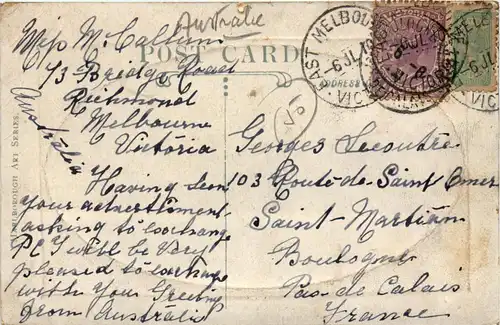 Australie
POST CARD
Miss McCallum
73 Bridge Road
Richmond
Melbourne
Victoria
Australia
Having seen
your advertisment
asking to exchange
PC I will be very
pleased to exchange
with you Greeting
from Australia
MARLBOROUGH ART SERIES.
ADDRESS
V5
EAST MELBOURNE
6 JL
VIC
Georges Lecoutre
103 Route de Saint Omer
Saint-Martin
Boulogne
Pas de Calais
France